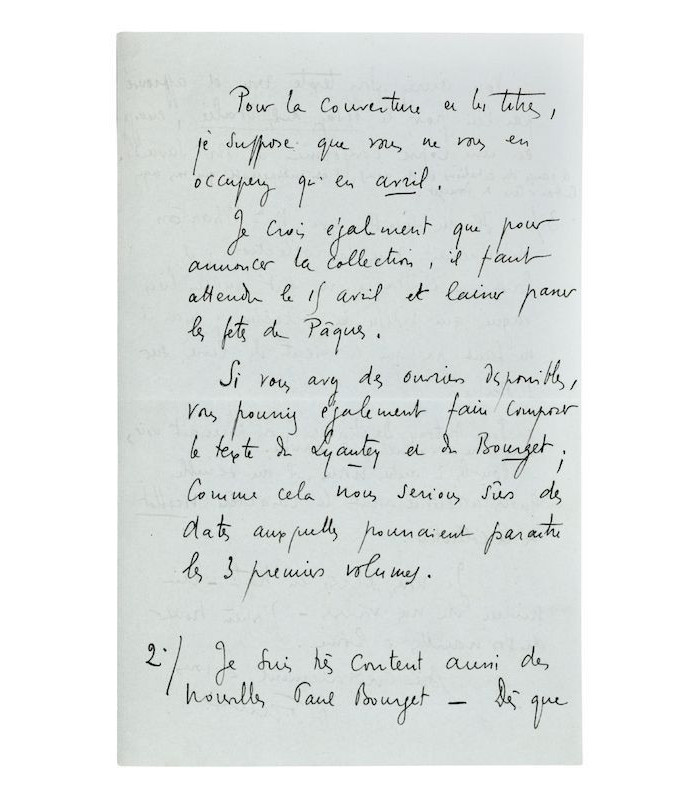 Pour la couverture et les titres,
je suppose que vous ne vous en
occuperez qu'en avril.
Je crois également que pour
annoncer la collection, il faut
attendre le 15 avril et laisser passer
les fêtes de Pâques.
Si vous avez des ouvriers disponibles,
vous pourriez également faire composer
le texte du Lyautey et du Bourget;
Comme cela nous serions sûrs des
dates auxquelles pourraient paraître
les 3 premiers volumes.
2°/ Je suis très content aussi des
nouvelles Paul Bourget — Dès que